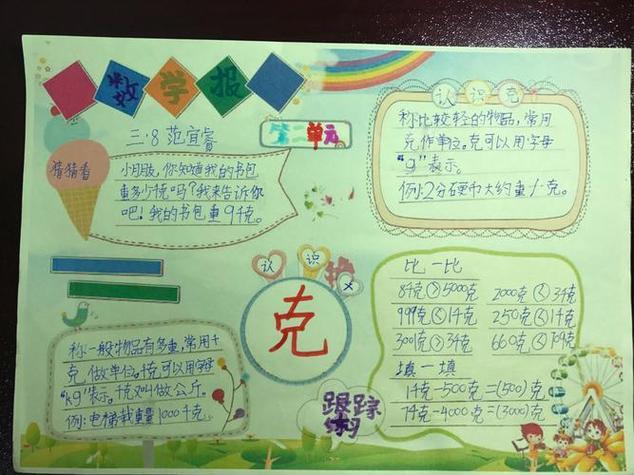 数学报
三·8 范宜睿
第二单元
猜猜看
小朋友,你知道我的书包
重多少千克吗?我来告诉你
吧!我的书包重9千克。
认识克
称比较轻的物品,常用
克作单位。克可以用字母
"g"表示。
例:2分硬币大约重1克。
认识
克
称一般物品有多重,常用千
克做单位。千克可以用字母
"kg"表示。千克又叫做公斤。
例:电梯载重量1000千克。
跟踪
练习
比一比
8千克>5000克 2000克<3千克
999克<1千克 250克<1千克
300克>3千克 660克<10千克
填一填
1千克-500克=(500)克
7千克-4000克=(3000)克